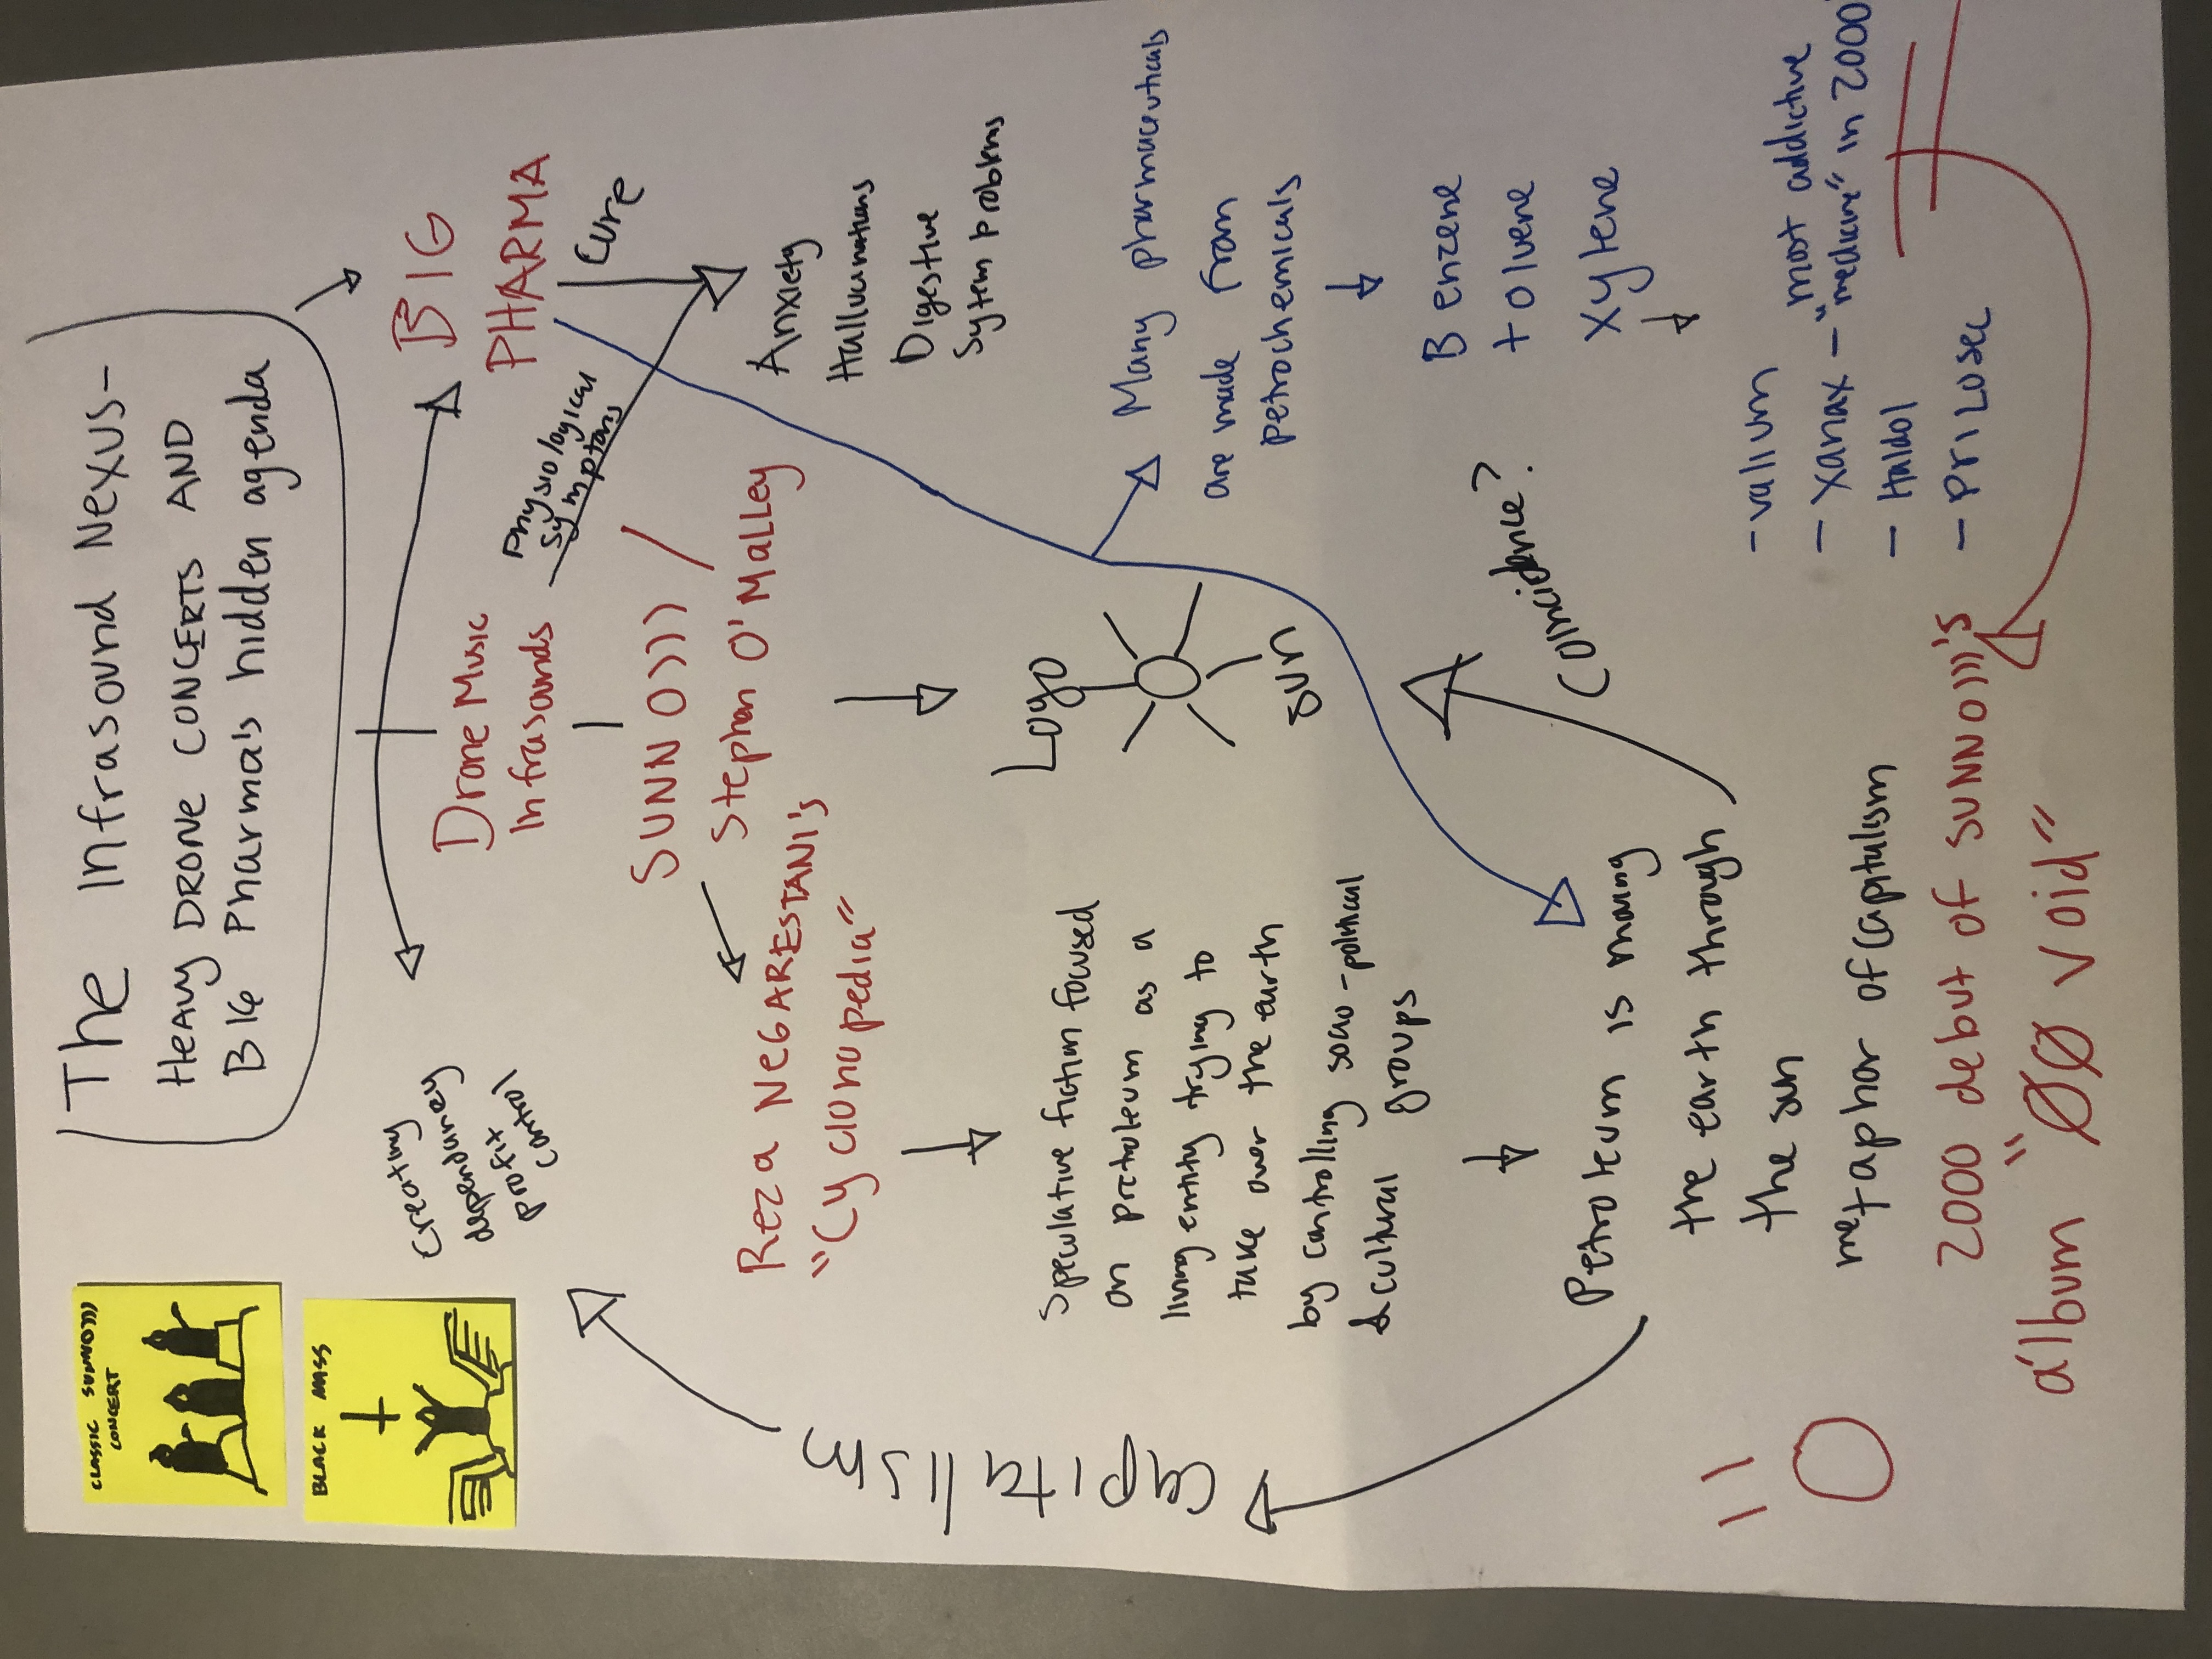 The Infrasound Nexus-
HEAVY DRONE CONCERTS AND
BIG Pharma's hidden agenda
CLASSIC SUNNO)))
CONCERT
BLACK MASS
Creating
dependancy
profit
control
Drone Music
Infrasounds
BIG
PHARMA
Cure
Physiological
symptoms
SUNN O))) /
Stephan O'MALLEY
Anxiety
Hallucinations
Digestive
System problems
Reza NEGARESTANI's
"Cyclonopedia"
Logo
sun
Speculative fiction focused
on proteleum as a
living entity trying to
take over the earth
by controlling socio-political
& cultural groups
Many pharmaceuticals
are made from
petrochemicals
Benzene
toluene
Xylene
Petroleum is making
the earth through
the sun
metaphor of capitalism
Coincidence?
capitalism
- valium
- Xanax - "most addictive
"medicine" in 2000"
- Haldol
- PriLosec
2000 debut of SUNNO)))'s
album "ØØ Void"